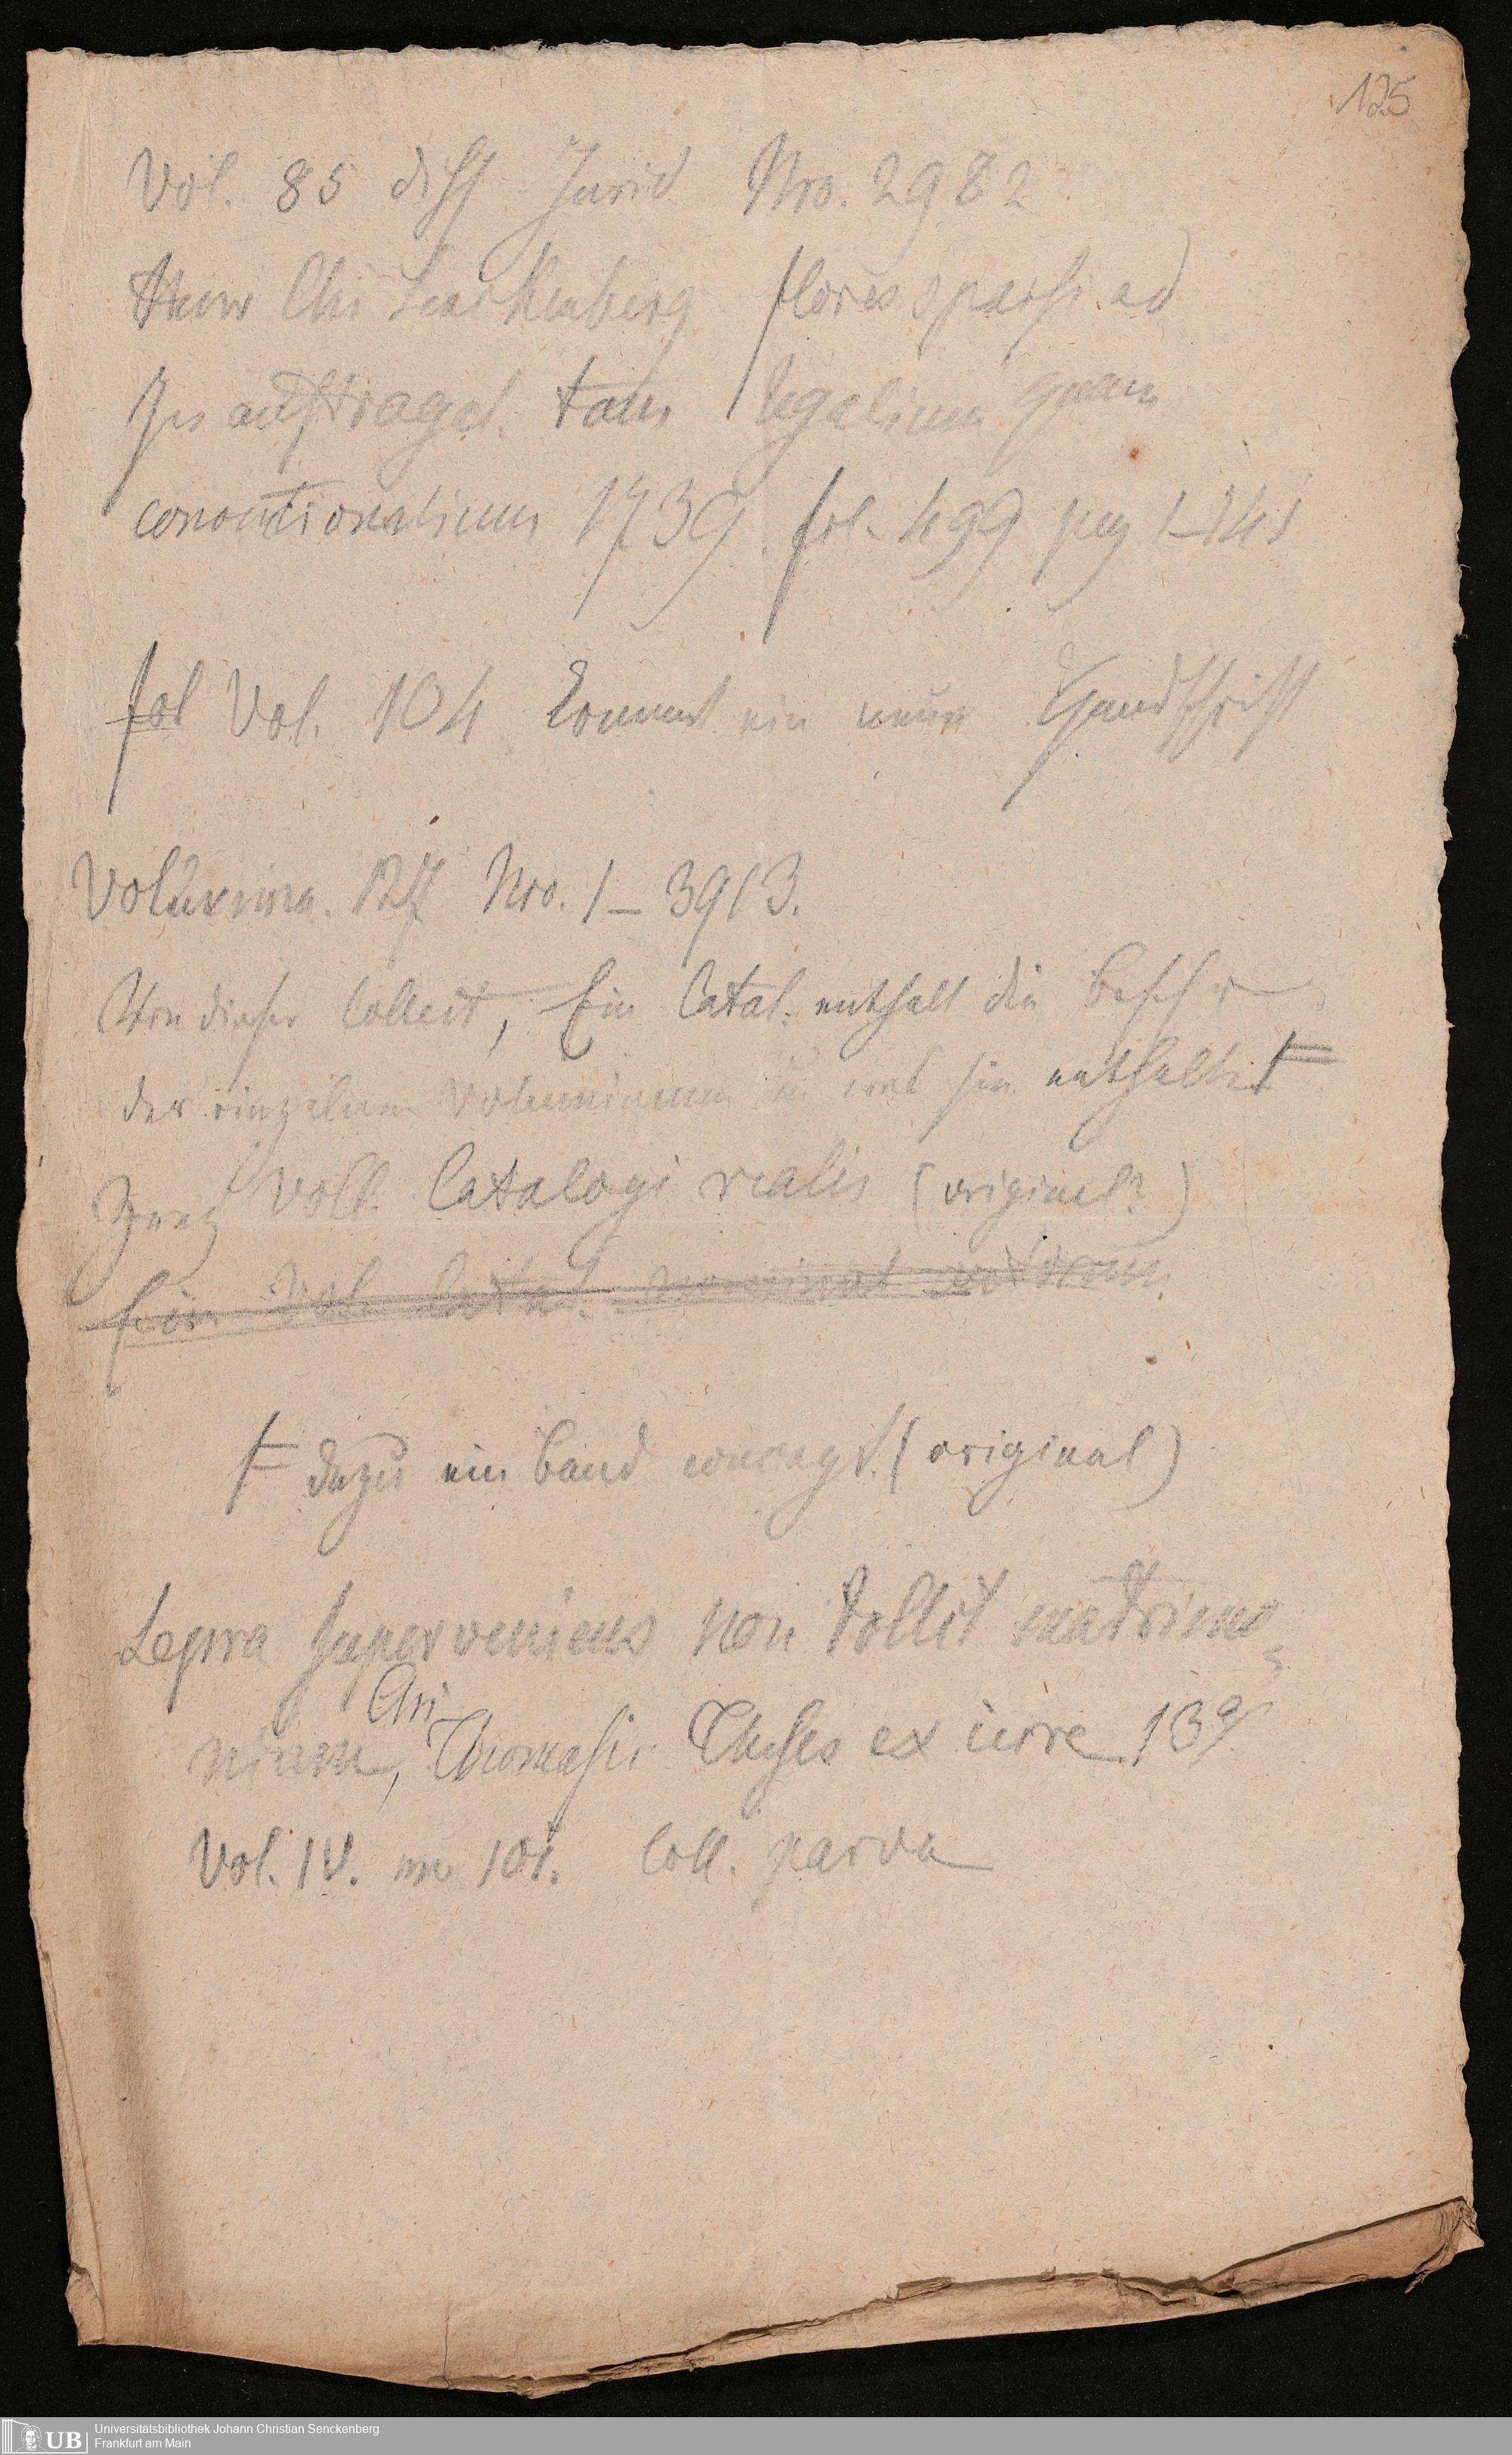 125
Vol. 85 diss Jurid Nro. 2982
Henr Chr Senckenberg flores sparsi ad
Jus austragal. tam legalium quam
conventionalium 1739. fol. 499 pag 1–141
fol Vol. 104 kommt ein neue Handschrift
Volumina. 127 Nro. 1–3913.
Von dieser Collect, Ein Catal. enthalt die Beschr
der einzelnen Voluminum u was sie enthaltet
Zwey Voll. Catalogi realis (original?)
Ein Vol. Catal.
dazu ein Band (original)
Lepra superveniens non tollit matrimo
Chr
nium, Thomasii Theses ex iure 13
Vol. IV. 101. Coll. parva
UB
Universitätsbibliothek Johann Christian Senckenberg
Frankfurt am Main